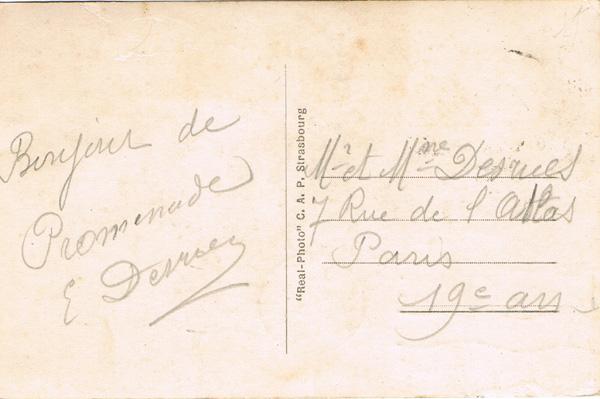 Bonjour de
Promenade
E Desrues
"Real-Photo" C. A. P. Strasbourg
Mr et Mme Desrues
7 Rue de l'Atlas
Paris
19e arr